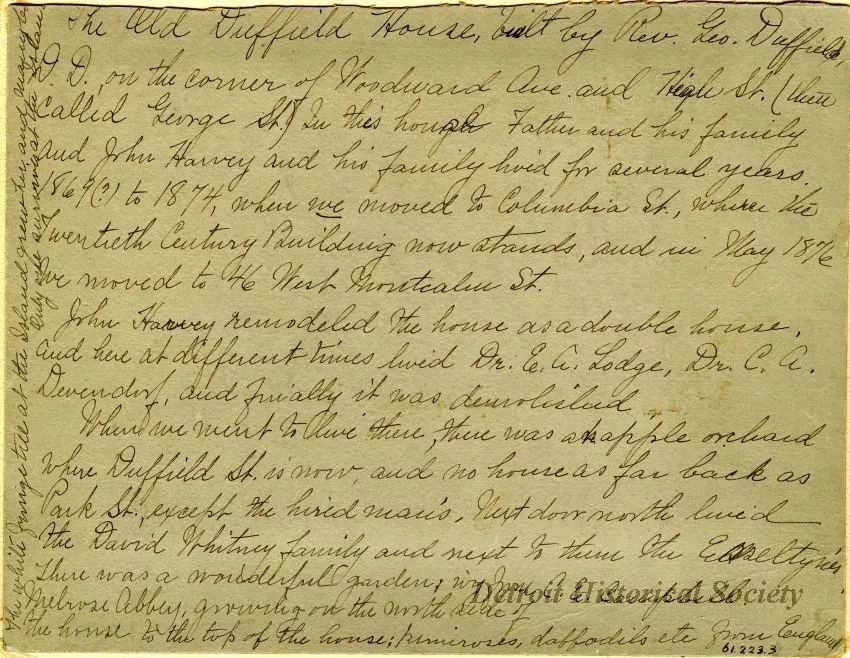 The Old Duffield House, built by Rev. Geo. Duffield,
D. D., on the corner of Woodward Ave. and High St. (then
called George St.) In this house Father and his family
and John Harvey and his family lived for several years
1869(?) to 1874, when we moved to Columbia St., where the
Twentieth Century Building now stands, and in May 1876
we moved to 46 West Montcalm St.
John Harvey remodeled the house as a double house,
and here at different times lived Dr. E. A. Lodge, Dr. C. A.
Devendorf, and finally it was demolished
When we went to live there, there was an apple orchard
where Duffield St. is now, and no house as far back as
Park St., except the hired man's. Next door north lived
the David Whitney family and next to them the
There was a wonderful garden; ivy from
Melrose Abbey, growing on the north side of
the house to the top of the house; primroses, daffodils etc from England
The white fringe tree at the Island grew here, and many
Only one survives at the Island
Detroit Historical Society
61.223.3